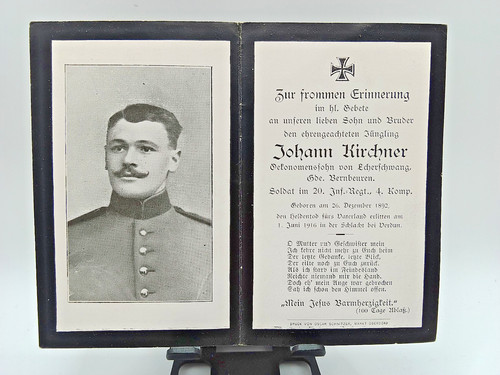 Zur frommen Erinnerung
im hl. Gebete
an unseren lieben Sohn und Bruder
den ehrengeachteten Jüngling
Johann Kirchner
Oekonomensohn von Echerschwang,
Gde. Bernbeuren.
Soldat im 20. Inf.-Regt., 4. Komp.
Geboren am 26. Dezember 1892,
den Heldentod fürs Vaterland erlitten am
1. Juni 1916 in der Schlacht bei Verdun.
O Mutter und Geschwister mein
Ich kehre nicht mehr zu Euch heim
Der letzte Gedanke, letzte Blick,
Der eilte noch zu Euch zurück.
Als ich starb im Feindesland
Reichte niemand mir die Hand.
Doch eh' mein Auge war gebrochen
Sah ich schon den Himmel offen.
„Mein Jesus Barmherzigkeit."
(100 Tage Ablaß.)